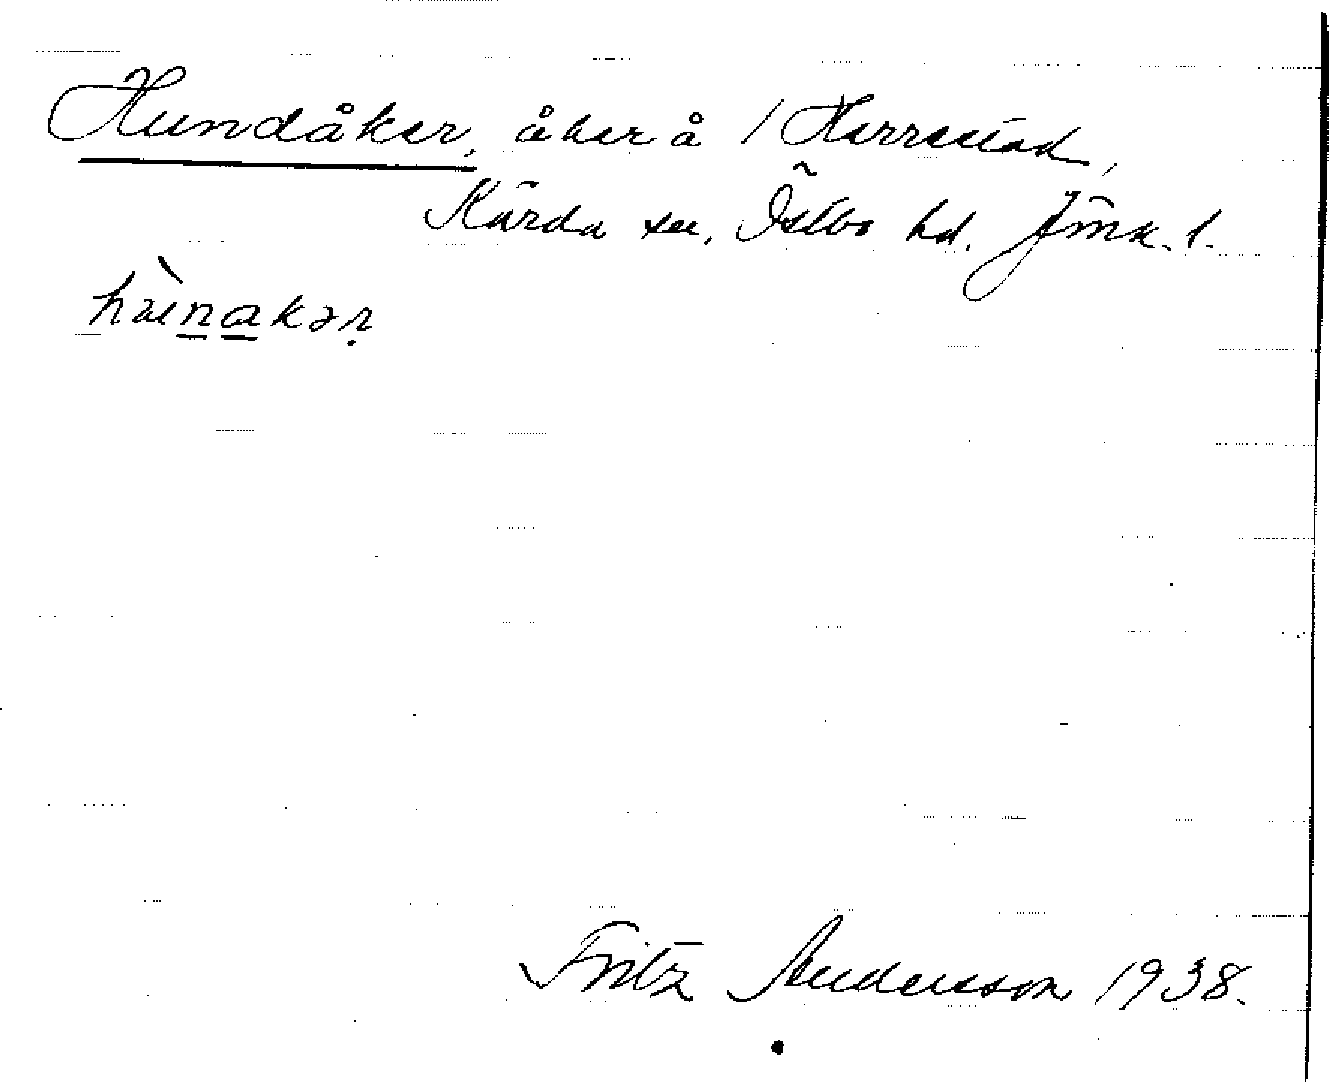 Hundåker, åker å / Herrestad,
Kärda sn, Östbo hd. Jönk. l.
Fritz Andersson 1938.